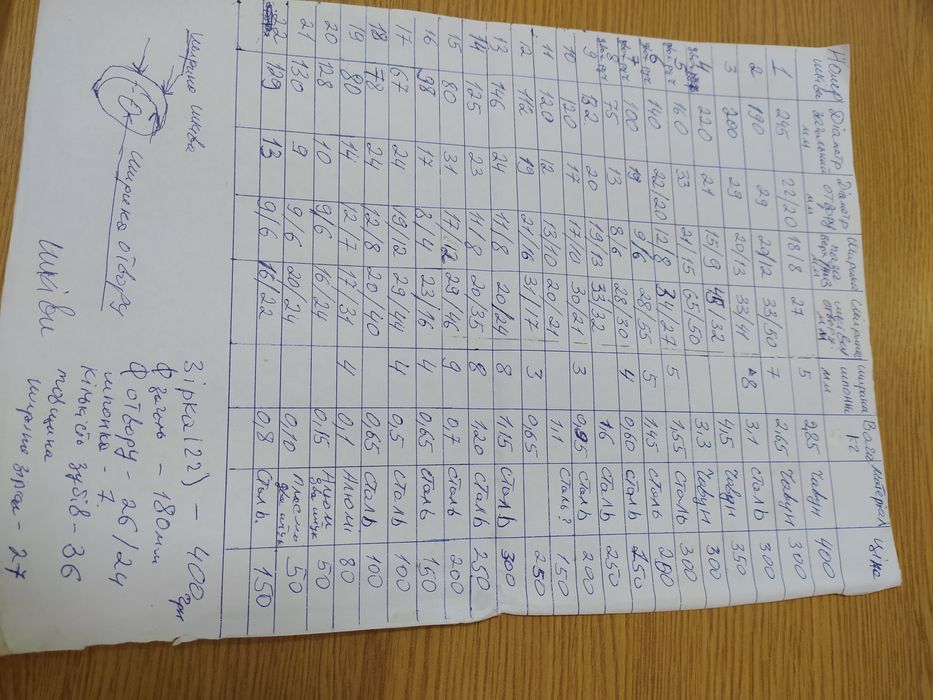 Номер шківи Діаметр загальний мм Діаметр отвору мм Ширина паза верх/низ мм Ширина шківи отвору мм ширина шпонки мм Вага кг матеріал ціна
1 245 22/20 18/8 27 5 2.85 чавун 400
2 190 29 20/12 33/50 7 2.65 чавун 300
3 200 29 20/13 33/41 8 3.1 сталь 300
4 220 21 15/9 45/32 4.5 чавун 350
5 160 33 21/15 65/50 3.3 чавун 300
6 140 22/20 12/8 34/27 5 1.55 сталь 300
7 100 19 9/6 28/55 5 1.45 сталь 250
8 75 13 8/6 28/30 4 0,60 сталь 150
9 52 20 19/13 33/32 1.6 сталь 250
10 120 17 17/10 30/21 3 0,95 сталь 200
11 120 12 13/10 20/21 1.1 сталь? 150
12 112 19 21/16 31/17 3 0,65 250
13 146 24 11/8 20/24 8 1.15 сталь 300
14 125 23 11/8 20/35 8 1,20 сталь 250
15 80 31 17/12 29/46 9 0,7 сталь 200
16 98 17 8/4 23/16 4 0,65 сталь 150
17 67 24 19/12 29/44 4 0,5 сталь 100
18 78 24 12/8 20/40 0,65 сталь 100
19 80 14 12/7 17/34 4 0,1 Алюмі 80
20 128 10 9/6 16/24 0,15 Алюм 50
21 130 9 9/6 20/24 0,10 Пласм 50
22 129 13 9/6 16/22 0,8 сталь. 150
ширина шкова
ширина отвору
Шківи
Зірка (22) – 400 грн
ф загань – 180мм
ф отвору – 26/24
шпонка – 7.
кількість зубів – 36
товщина
ширина зірка – 27